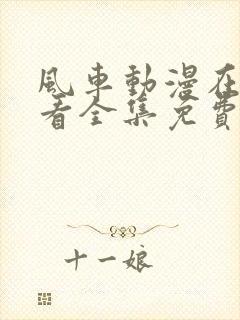 風車動漫在
看全集免費
十一娘